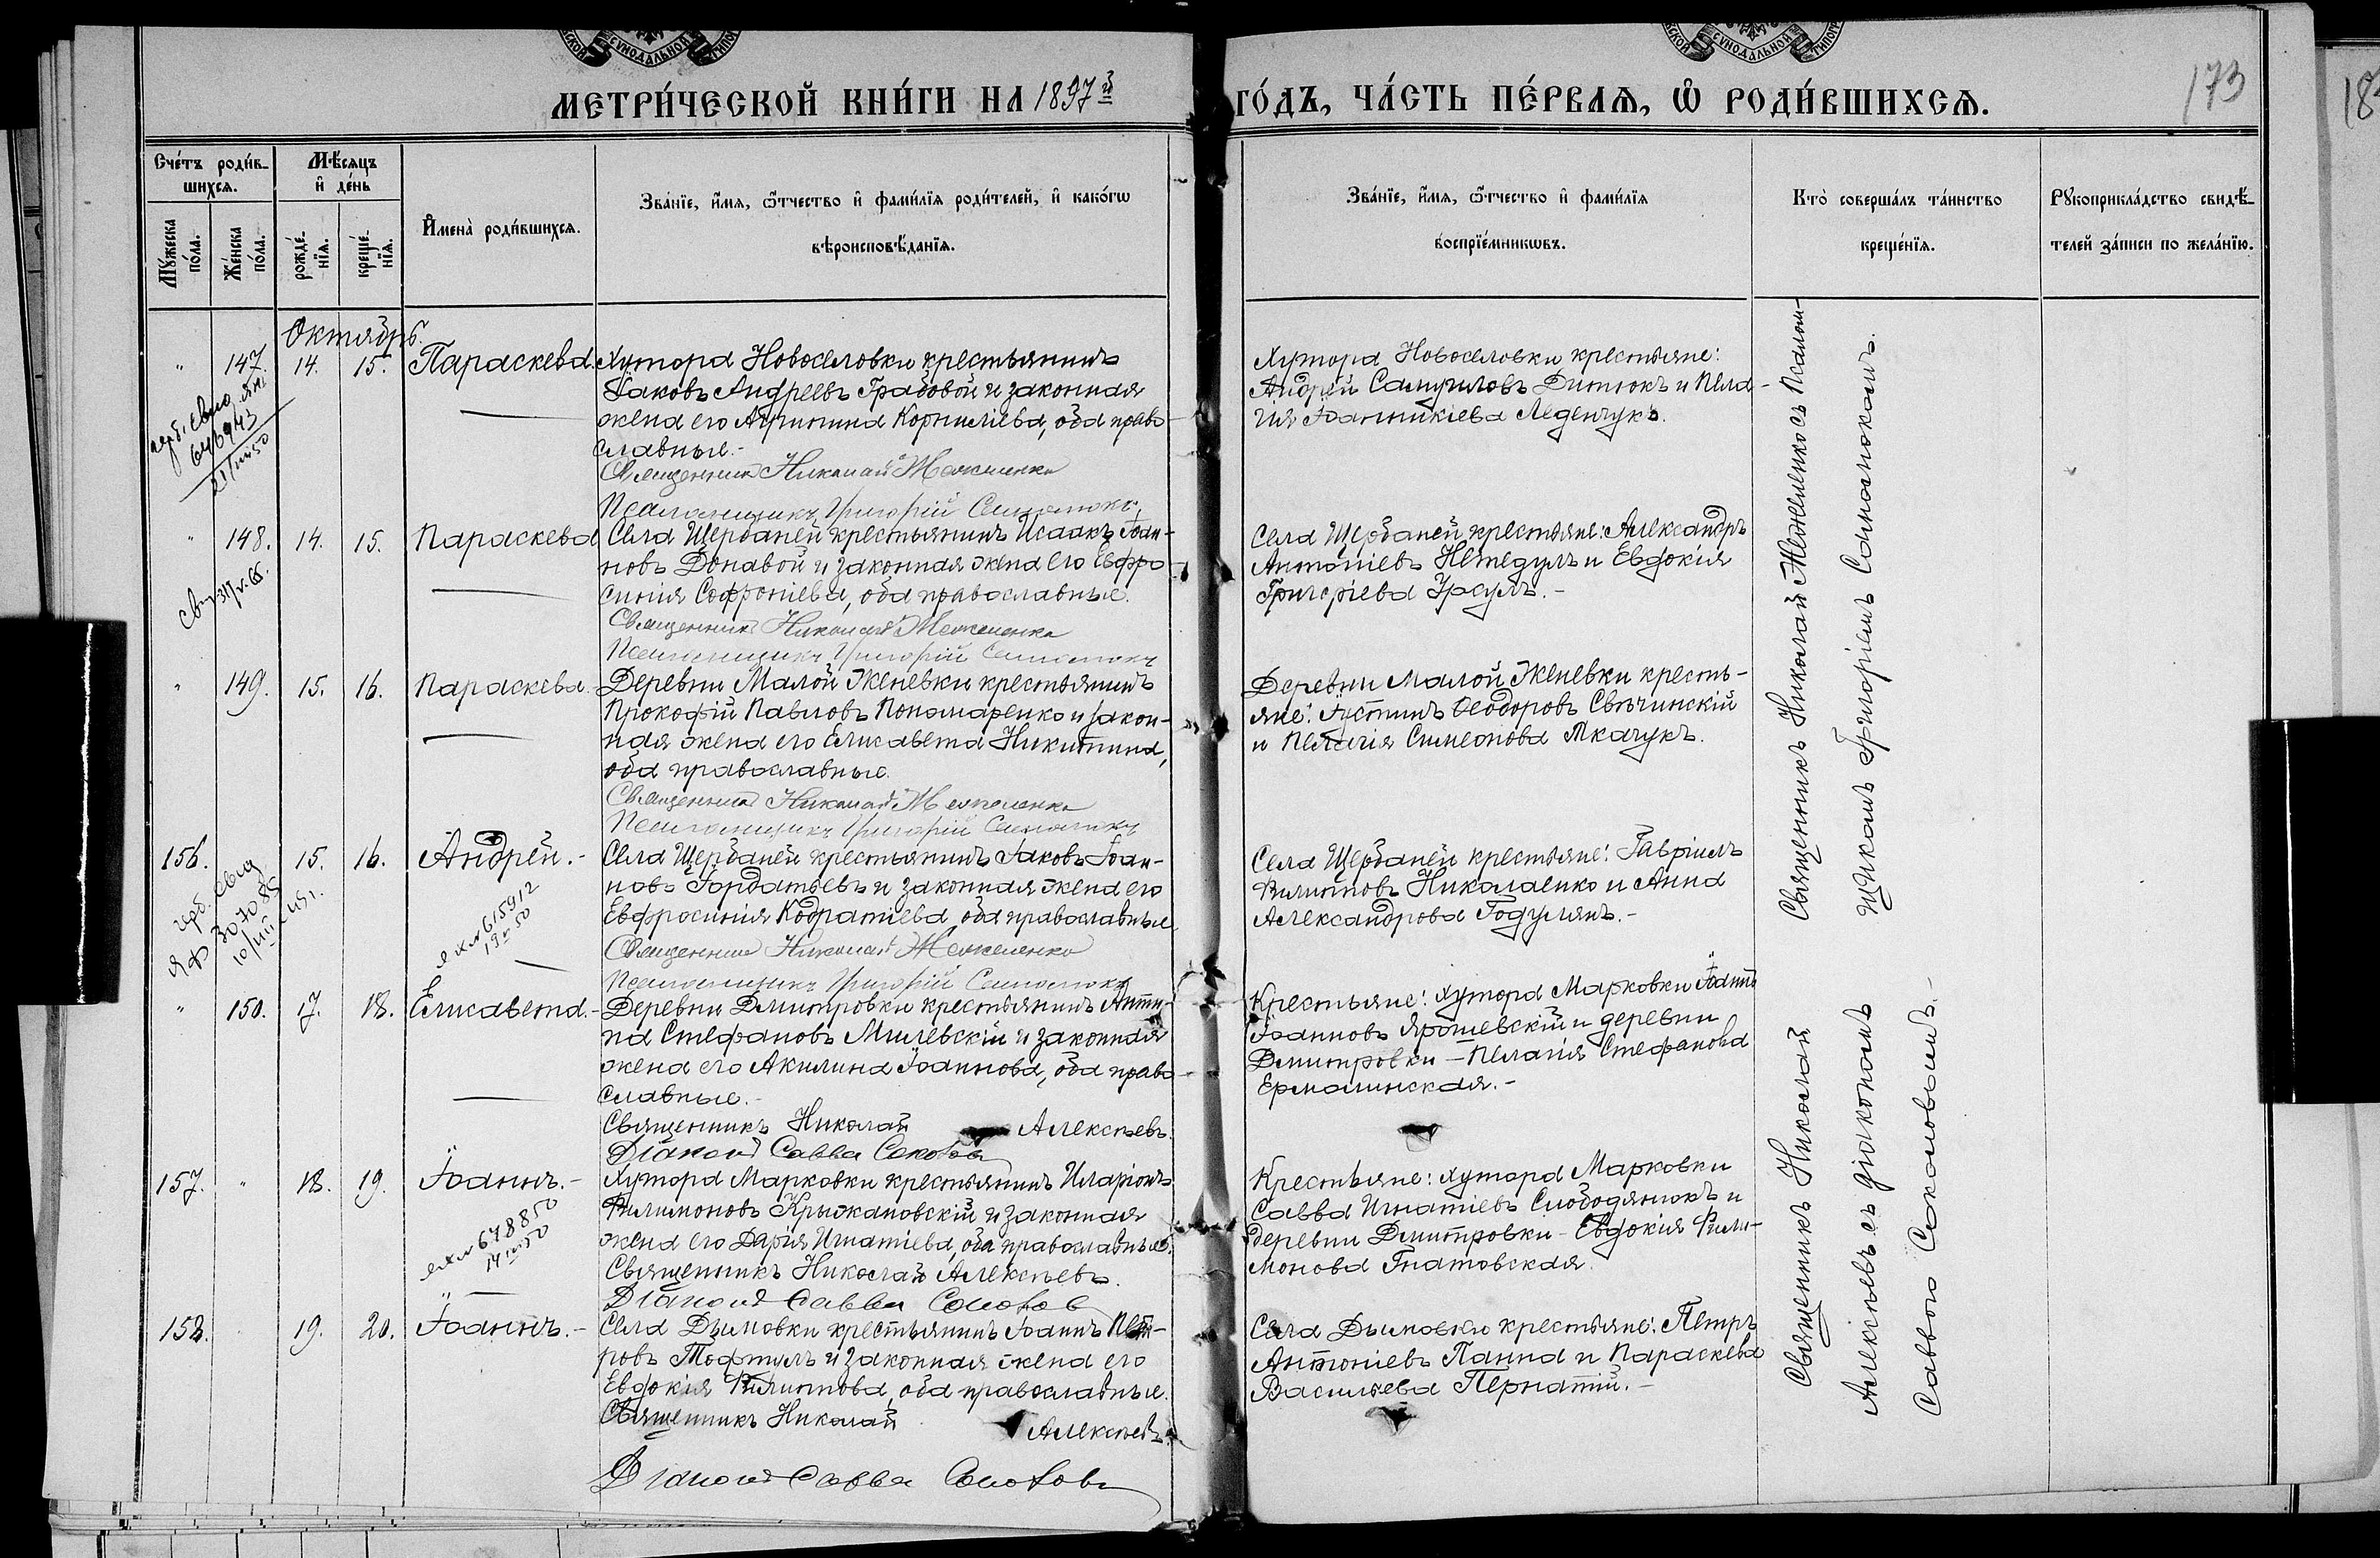 СѴНОДАЛЬНОЙ
СѴНОДАЛЬНОЙ
МЕТРИ́ЧЕСКОЙ КНИ́ГИ НА 1897й ГО́ДЪ, ЧА́СТЬ ПЕ́РВАЯ, Ѡ РОДИ́ВШИХСЯ.
173
Сче́тъ роди́в-
шихся.
Мѣ́сяцъ
и҆ де́нь
Мꙋ́жеска по́ла.
Же́нска по́ла.
рожде́-
нїя.
креще́-
нїя.
И҆мена̀ роди́вшихся.
Зва́нїе, и҆́мя, ѻ҆́тчество и҆ фами́лїя роди́телей, и҆ како́гѡ
вѣроисповѣ́данїя.
Зва́нїе, и҆́мя, ѻ҆́тчество и҆ фами́лїя
воспрїе́мникѡвъ.
Кто̀ соверша́лъ та́инство
креще́нїя.
Рꙋкоприкла́дство свидѣ́-
телей за́писи по жела́нїю.
Октябрь.
" 147. 14. 15. Параскева.
Хутора Новоселовки крестьянинъ
Іаковъ Андреевъ Грабовой и законная
жена его Агрипина Корниліева, оба право-
славные.-
Священникъ Николай Меженко
Псаломщикъ Григорій
Хутора Новоселовки крестьяне:
Андрей Самуиловъ Дитюкъ и Пела-
гія Іоанникіева Леденчукъ.
646943
21/III 50
" 148. 14. 15. Параскева
Села Щербаней крестьянинъ Исаакъ Іоан-
новъ Донавой и законная жена его Евфро-
синія Софроніева, оба православные.
Священникъ Николай Меженко
Псаломщикъ Григорій
Села Щербаней крестьяне: Александръ
Антоніевъ Нетедулъ и Евдокія
Григоріева Урсулъ.-
" 149. 15. 16. Параскева.
Деревни Малой Женевки крестьянинъ
Прокофій Павловъ Пономаренко и закон-
ная жена его Елисавета Никитина,
оба православные.
Священникъ Николай Меженко
Псаломщикъ Григорій
Деревни Малой Женевки кресть-
яне: Іустинъ Ѳеодоровъ Свѣчинскій
и Пелагія Симеонова Ткачукъ.
156. 15. 16. Андрей.-
Села Щербаней крестьянинъ Іаковъ Іоан-
новъ Гордатьевъ и законная жена его
Евфросинія Кодратіева, оба православные.
Священникъ Николай Меженко
Псаломщикъ Григорій
Села Щербаней крестьяне: Гавріилъ
Филипповъ Николаенко и Анна
Александрова Годулянъ.-
615912
" 150. 17. 18. Елисавета.-
Деревни Дмитровки крестьянинъ Анти-
па Стефановъ Милевскій и законная
жена его Акилина Іоаннова, оба право-
славные.-
Священникъ Николай Алексѣевъ.
Діаконъ Савва Соколовъ
Крестьяне: хутора Марковки Іоаннъ
Іоанновъ Ярошевскій и деревни
Дмитровки - Пелагія Стефанова
Ермолинская.-
157. " 18. 19. Іоаннъ.-
Хутора Марковки крестьянинъ Иларіонъ
Филимоновъ Крыжановскій и законная
жена его Дарія Игнатіева, оба православные.
Священникъ Николай Алексѣевъ.
Діаконъ Савва Соколовъ
Крестьяне: хутора Марковки
Савва Игнатіевъ Слободянюкъ и
деревни Дмитровки - Евдокія Фили-
монова Гнатовская.
678850
158. 19. 20. Іоаннъ.-
Села Дымовки крестьянинъ Іоаннъ Пет-
ровъ Тофтулъ и законная жена его
Евдокія Филиппова, оба православные.
Священникъ Николай Алексѣевъ.
Діаконъ Савва Соколовъ
Села Дымовки крестьяне: Петръ
Антоніевъ Панна и Параскева
Васильева Пернатій.-
Священникъ Николай Меженко съ Псалом-
щикомъ Григоріемъ
Священникъ Николай
Алексѣевъ съ діакономъ
Саввою Соколовымъ.-